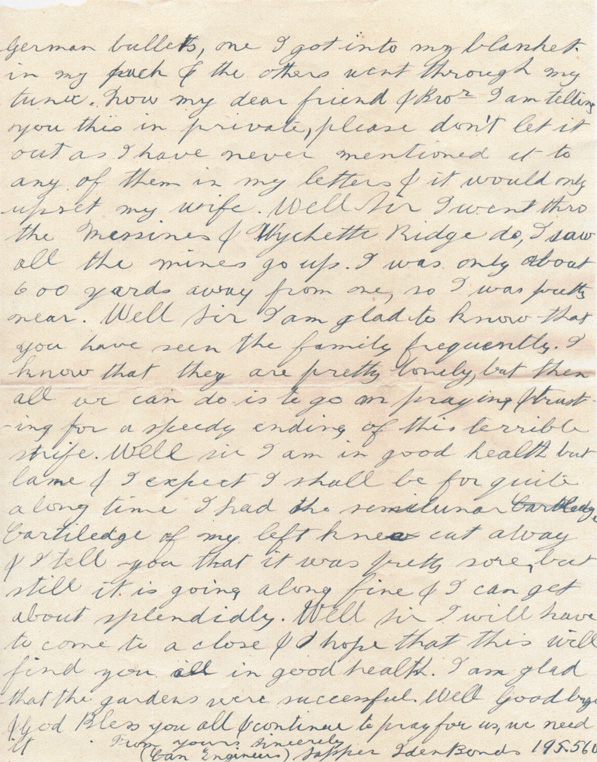 German bullets, one I got into my blanket
in my pack & the others went through my
tunic. Now my dear friend & Bro^r I am telling
you this in private, please don't let it
out as I have never mentioned it to
any of them in my letters & it would only
upset my wife. Well Sir I went thro
the Messines & Wychette Ridge do, I saw
all the mines go up. I was only about
600 yards away from one, so I was pretty
near. Well Sir I am glad to know that
you have seen the family frequently. I
know that they are pretty lonely, but then
all we can do is to go on praying & trust-
-ing for a speedy ending of this terrible
strife. Well sir I am in good health but
lame & I expect I shall be for quite
along time I had the semilunar Cartledge
Cartiledge of my left knee cut away
& I tell you that it was pretty sore, but
still it is going along fine & I can get
about splendidly. Well sir I will have
to come to a close & I hope that this will
find you all in good health. I am glad
that the gardens were successful. Well Goodbye
& God Bless you all & continue to pray for us, we need
it From yours sincerely
(Can Engineers) Sapper Iden Bonds 195.560